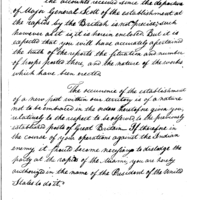 The accounts received since the departure
of Major General Scott of the establishment at
the rapids by the British is not precise; such
however as it is, it is herein enclosed. But it is
expected that you will have accurately ascertained
the truth of the reports the situation and number
of troops posted there, and the nature of the works
which have been erected
The occurrence of the establishment
of a new post within our territory is of a nature
not to be embraced in the orders heretofore given you,
relatively to the respect to be offered to the previously
established posts of Great Britain. If therefore in
the course of your operations against the Indian
enemy, it should become necessary to dislodge the
party at the rapids of the Miami, you are hereby
authorized in the name of the President of the United
States to do it.